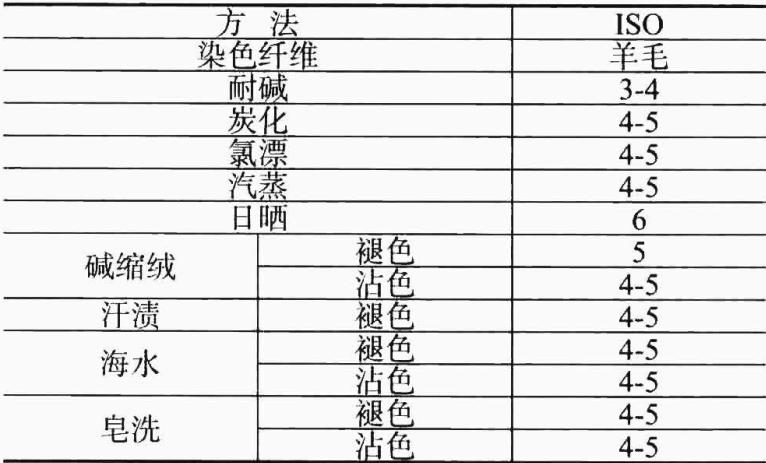 方 法 ISO
染色纤维 羊毛
耐碱 3-4
炭化 4-5
氯漂 4-5
汽蒸 4-5
日晒 6
碱缩绒 褪色 5
沾色 4-5
汗渍 褪色 4-5
海水 褪色 4-5
沾色 4-5
皂洗 褪色 4-5
沾色 4-5